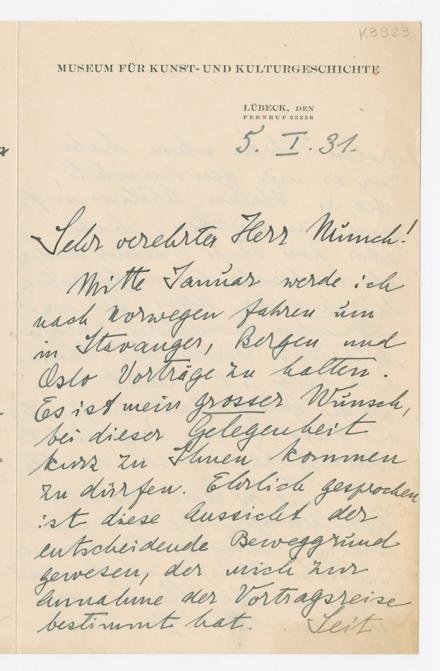 K3923
MUSEUM FÜR KUNST- UND KULTURGESCHICHTE
LÜBECK, DEN
5. I. 31.
Sehr verehrter Herr Munch!
Mitte Januar werde ich
nach Norwegen fahren um
in Stavanger, Bergen und
Oslo Vorträge zu halten.
Es ist mein grosser Wunsch,
bei dieser Gelegenheit
kurz zu Ihnen kommen
zu dürfen. Ehrlich gesprochen
ist diese Aussicht der
entscheidende Beweggrund
gewesen, der mich zur
Annahme der Vortragsreise
bestimmt hat. Seit